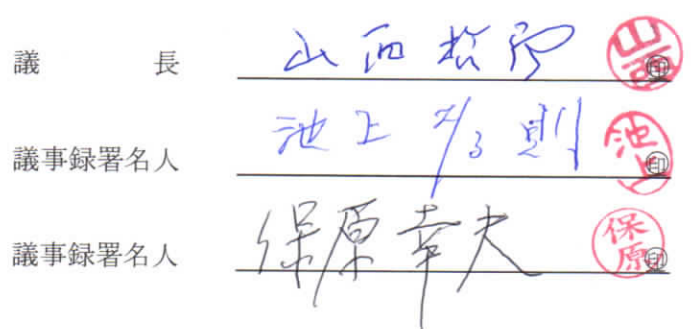 議長 山西 印
議事録署名人 池上 則 池上 印
議事録署名人 保原幸夫 保原 印